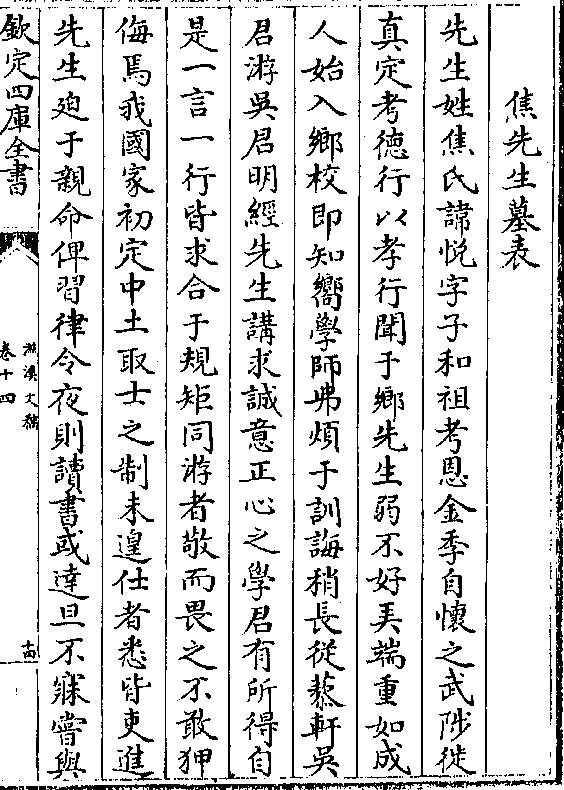 焦先生墓表
先生姓焦氏諱悅字子和祖考恩金季自懷之武陟徙
真定考德行以孝行聞于鄉先生弱不好弄端重如成
人始入鄉校即知嚮學師弗煩于訓誨稍長從蓺軒吳
君游吳君明經先生講求誠意正心之學君有所得自
是一言一行皆求合于規矩同游者敬而畏之不敢狎
侮焉我國家初定中土取士之制未遑仕者悉皆吏進
先生廹于親命俾習律令夜則讀書或達旦不寐嘗與
欽定四庫全書
滋溪文稿
卷十四
十四